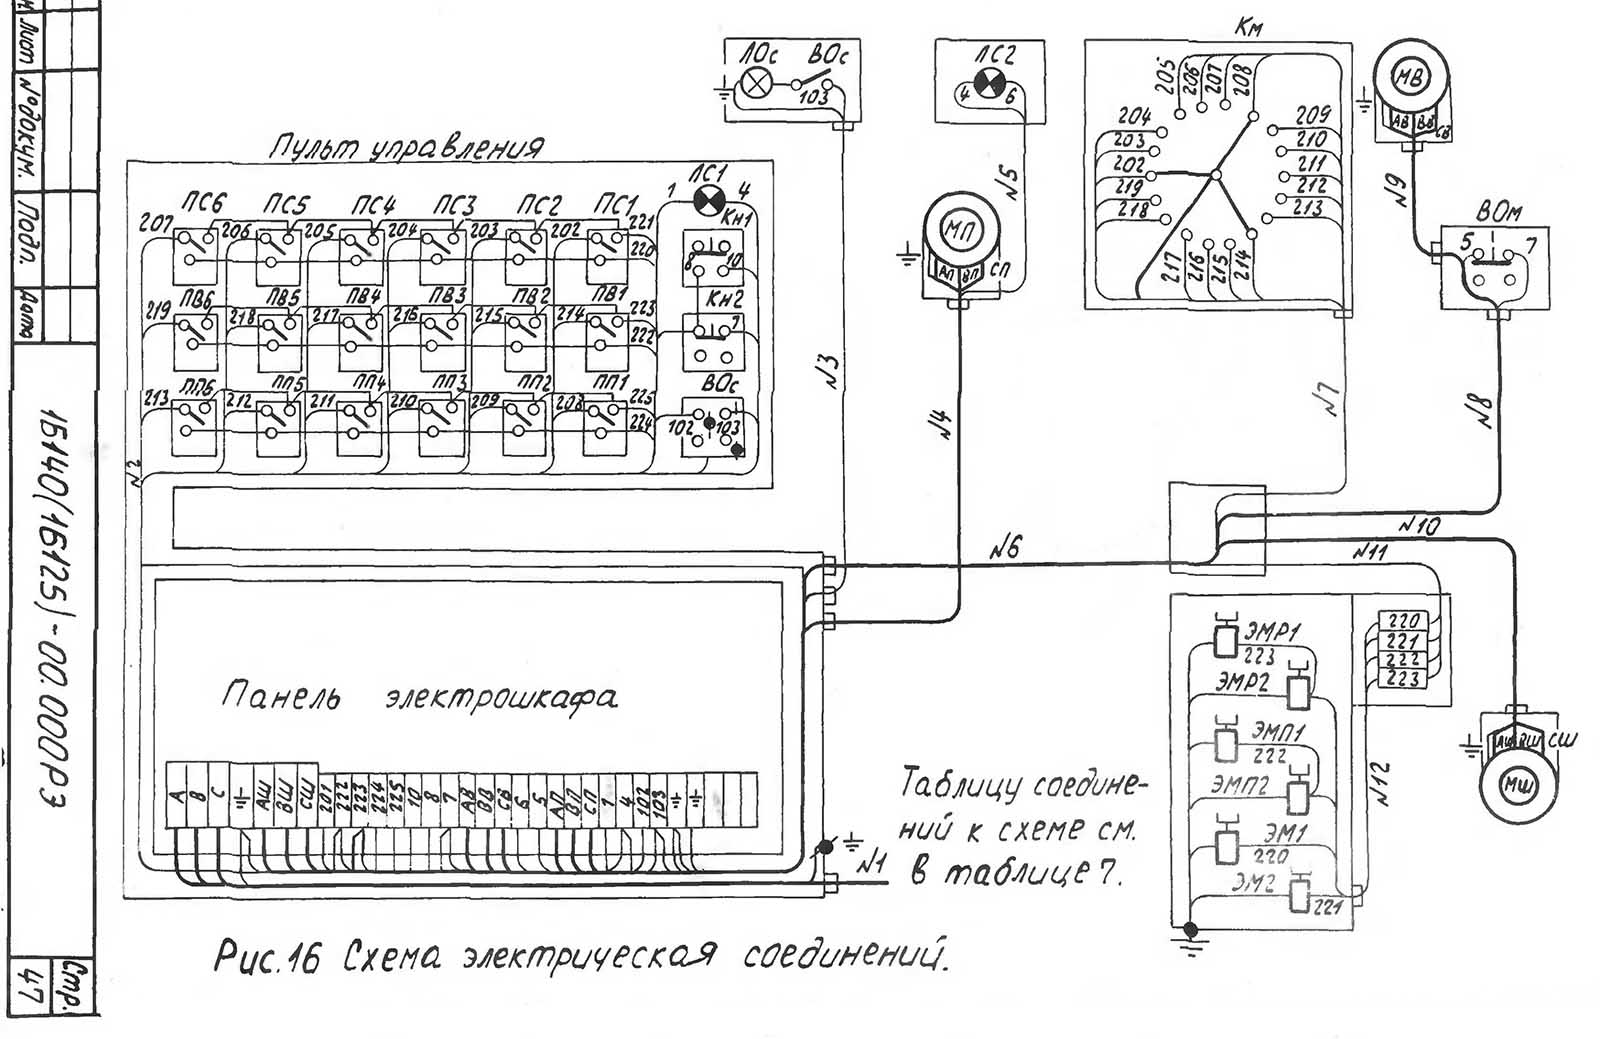 Лист
№докум.
Подп.
Дата
1Б140(1Б125)-00.000РЭ
Стр.
47
Пульт управления
ПС6 ПС5 ПС4 ПС3 ПС2 ПС1
207 206 205 204 203 202 221
220
ПВ6 ПВ5 ПВ4 ПВ3 ПВ2 ПВ1
219 218 217 216 215 214 223
222
ПП6 ПП5 ПП4 ПП3 ПП2 ПП1
213 212 211 210 209 208 225
224
1 ЛС1 4
Кн1
8 10
Кн2
7
ВОс
102 103
№2
ЛОс ВОс
103
№3
ЛС2
4 6
№5
МП
АП ВП СП
№4
Км
205 206 207 208
204 209
203 210
202 211
219 212
218 213
217 216 215 214
№7
МВ
АВ ВВ СВ
№9
ВОм
5 7
№8
№6
№10
№11
220
221
222
223
№12
ЭМР1
223
ЭМР2
ЭМП1
222
ЭМП2
ЭМ1
220
ЭМ2
221
АШ ВШ СШ
МШ
Панель электрошкафа
А В С АШ ВШ СШ 201 222 223 224 225 10 8 7 АВ ВВ СВ 6 5 АП ВП СП 1 4 102 103
№1
Таблицу соедине-
ний к схеме см.
в таблице 7.
Рис.16 Схема электрическая соединений.